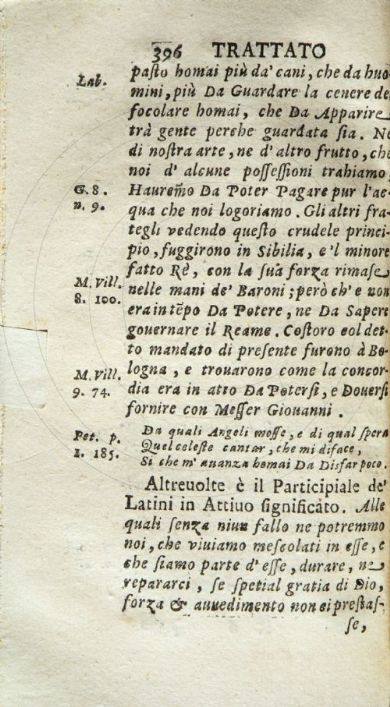 396 TRATTATO
Lab.
pasto homai più da' cani, che da huo
mini, più Da Guardare la cenere de
focolare homai, che Da Apparire
trà gente perche guardata sia. Ne
di nostra arte, ne d' altro frutto, che
noi d' alcune possessioni trahiamo,
G. 8.
n. 9.
Hauremo Da Poter Pagare pur l'ac
qua che noi logoriamo. Gli altri fra-
tegli vedendo questo crudele princi-
pio, fuggirono in Sibilia, e 'l minore
fatto Rè, con la sua forza rimase
M. Vill.
8. 100.
nelle mani de' Baroni; però ch' e non
era in tēpo Da Potere, ne Da Sapere
gouernare il Reame. Costoro col det-
to mandato di presente furono à Bo-
M. Vill.
9. 74.
logna, e trouarono come la concor-
dia era in atto Da Potersi, e Douersi
fornire con Messer Giouanni.
Pet. p.
1. 185.
Da quali Angeli mosse, e di qual spera
Quel celeste cantar, che mi disface,
Sì che m' auanza homai Da Disfar poco.
Altreuolte è il Participiale de'
Latini in Attiuo significato. Alle
quali senza niun fallo ne potremmo
noi, che viuiamo mescolati in esse, e
che siamo parte d' esse, durare, ne
repararci, se spetial gratia di Dio,
forza & auuedimento non ci prestas-
se,